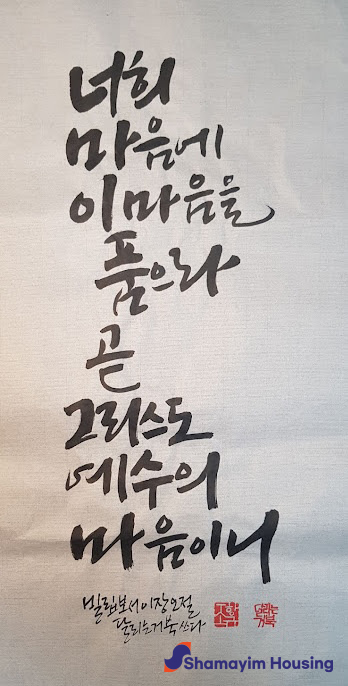 너희
마음에
이 마음을
품으라
곧
그리스도
예수의
마음이니
빌립보서 이장 오절
달리는거북 쓰다
Shamayim Housing